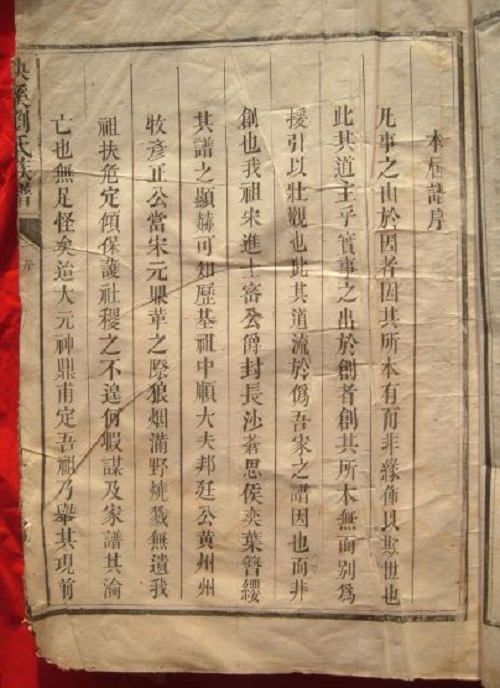 本届譜序
凡事之由於因者因其所本有而非緣飾以欺世也
此其道主乎實事之出於創者創其所本無而別為
援引以壯觀也此其道流於偽吾家之譜因也而非
創也我祖宋進士審公爵封長沙蒼思侯奕葉簪纓
其譜之顯赫可知歷基祖中順大夫邦廷公黃州州
牧彥正公當宋元鼎革之際狼烟滿野燒戮無遺我
祖扶危定傾保護社稷之不遑何暇謀及家譜其淪
亡也無足怪矣迨大元神鼎甫定吾祖乃舉其現前
溪劉氏族譜